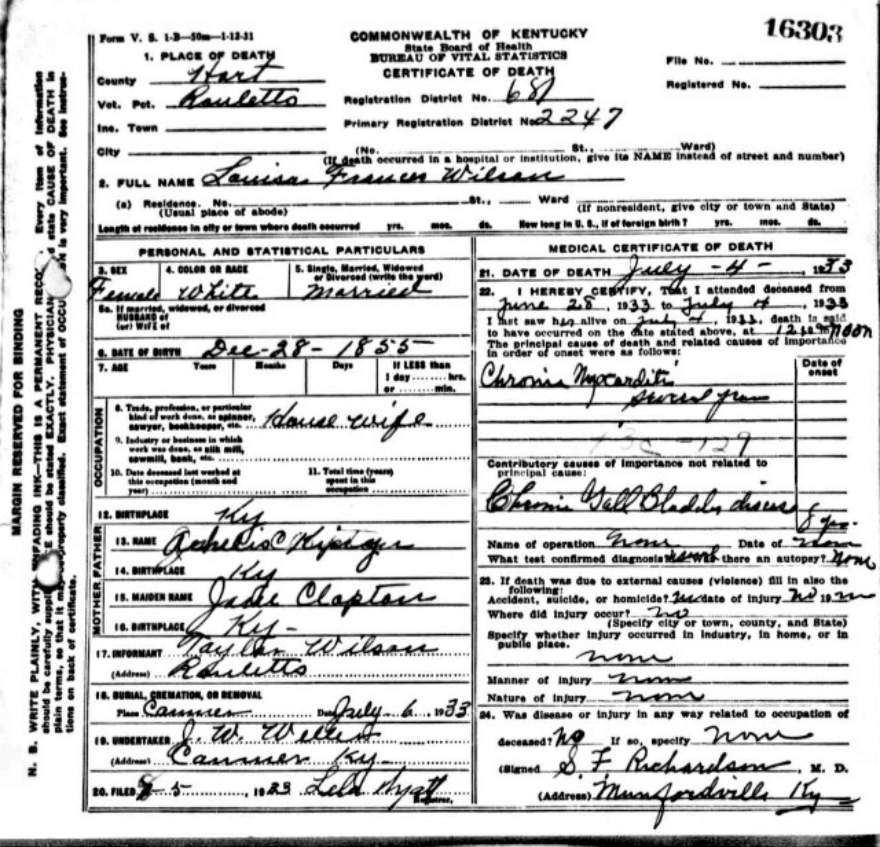 16303
Form V. S. 1-B—50m—1-12-31
COMMONWEALTH OF KENTUCKY
State Board of Health
BUREAU OF VITAL STATISTICS
CERTIFICATE OF DEATH
File No.
Registered No.
1. PLACE OF DEATH
County Hart
Vot. Pct. Rauletts
Inc. Town
City
Registration District No. 681
Primary Registration District No. 2247
(No. St., Ward)
(If death occurred in a hospital or institution, give its NAME instead of street and number)
2. FULL NAME Louisa Frances Wilson
(a) Residence. No. St., Ward
(Usual place of abode) (If nonresident, give city or town and State)
Length of residence in city or town where death occurred yrs. mos. ds. How long in U. S., if of foreign birth? yrs. mos. ds.
PERSONAL AND STATISTICAL PARTICULARS
3. SEX Female
4. COLOR OR RACE White
5. Single, Married, Widowed
or Divorced (write the word)
Married
5a. If married, widowed, or divorced
HUSBAND of
(or) WIFE of
6. DATE OF BIRTH Dec-28-1855
7. AGE Years Months Days If LESS than
1 day ........ hrs.
or ........ min.
OCCUPATION
8. Trade, profession, or particular
kind of work done, as spinner,
sawyer, bookkeeper, etc. House wife
9. Industry or business in which
work was done, as silk mill,
sawmill, bank, etc.
10. Date deceased last worked at
this occupation (month and
year)
11. Total time (years)
spent in this
occupation
12. BIRTHPLACE Ky
FATHER
13. NAME
14. BIRTHPLACE Ky
MOTHER
15. MAIDEN NAME Jane Clapton
16. BIRTHPLACE Ky-
17. INFORMANT Taylor Wilson
(Address) Rauletts
18. BURIAL, CREMATION, OR REMOVAL
Place Canmer Date July 6, 1933
19. UNDERTAKER J. W.
(Address) Canmer Ky-
20. FILED 5, 1923 Lela Wyatt
Registrar.
MEDICAL CERTIFICATE OF DEATH
21. DATE OF DEATH July -4-, 1933
22. I HEREBY CERTIFY, That I attended deceased from
June 28, 1933 to July 4, 1933
I last saw her alive on July 4, 1933, death is said
to have occurred on the date stated above, at 12 noon
The principal cause of death and related causes of importance
in order of onset were as follows:
Date of
onset
Chronic Myocarditi
several
Contributory causes of importance not related to
principal cause:
Chronic Gall Bladder disease
8 yrs.
Name of operation None Date of None
What test confirmed diagnosis? Was there an autopsy? None
23. If death was due to external causes (violence) fill in also the
following:
Accident, suicide, or homicide? Date of injury No 19
Where did injury occur? No
(Specify city or town, county, and State)
Specify whether injury occurred in industry, in home, or in
public place.
none
Manner of injury none
Nature of injury none
24. Was disease or injury in any way related to occupation of
deceased? No If so, specify none
(Signed S. F. Richardson, M. D.
(Address) Munfordville Ky
MARGIN RESERVED FOR BINDING